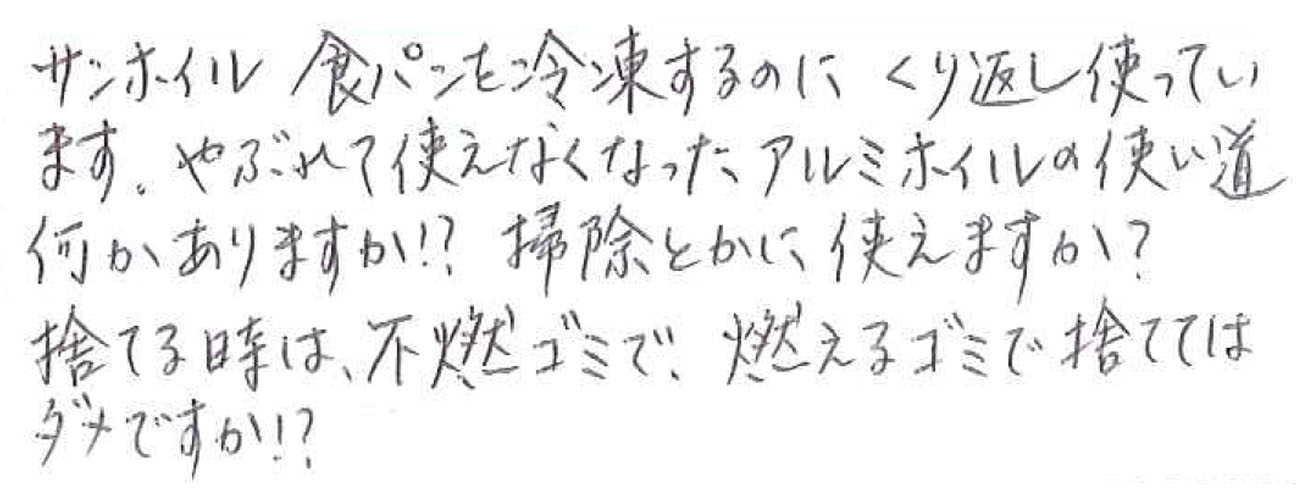 サンホイル 食パンを冷凍するのに くり返し使ってい
ます。やぶれて使えなくなったアルミホイルの使い道
何かありますか!? 掃除とかに使えますか?
捨てる時は、不燃ゴミで、燃えるゴミで捨てては
ダメですか!?